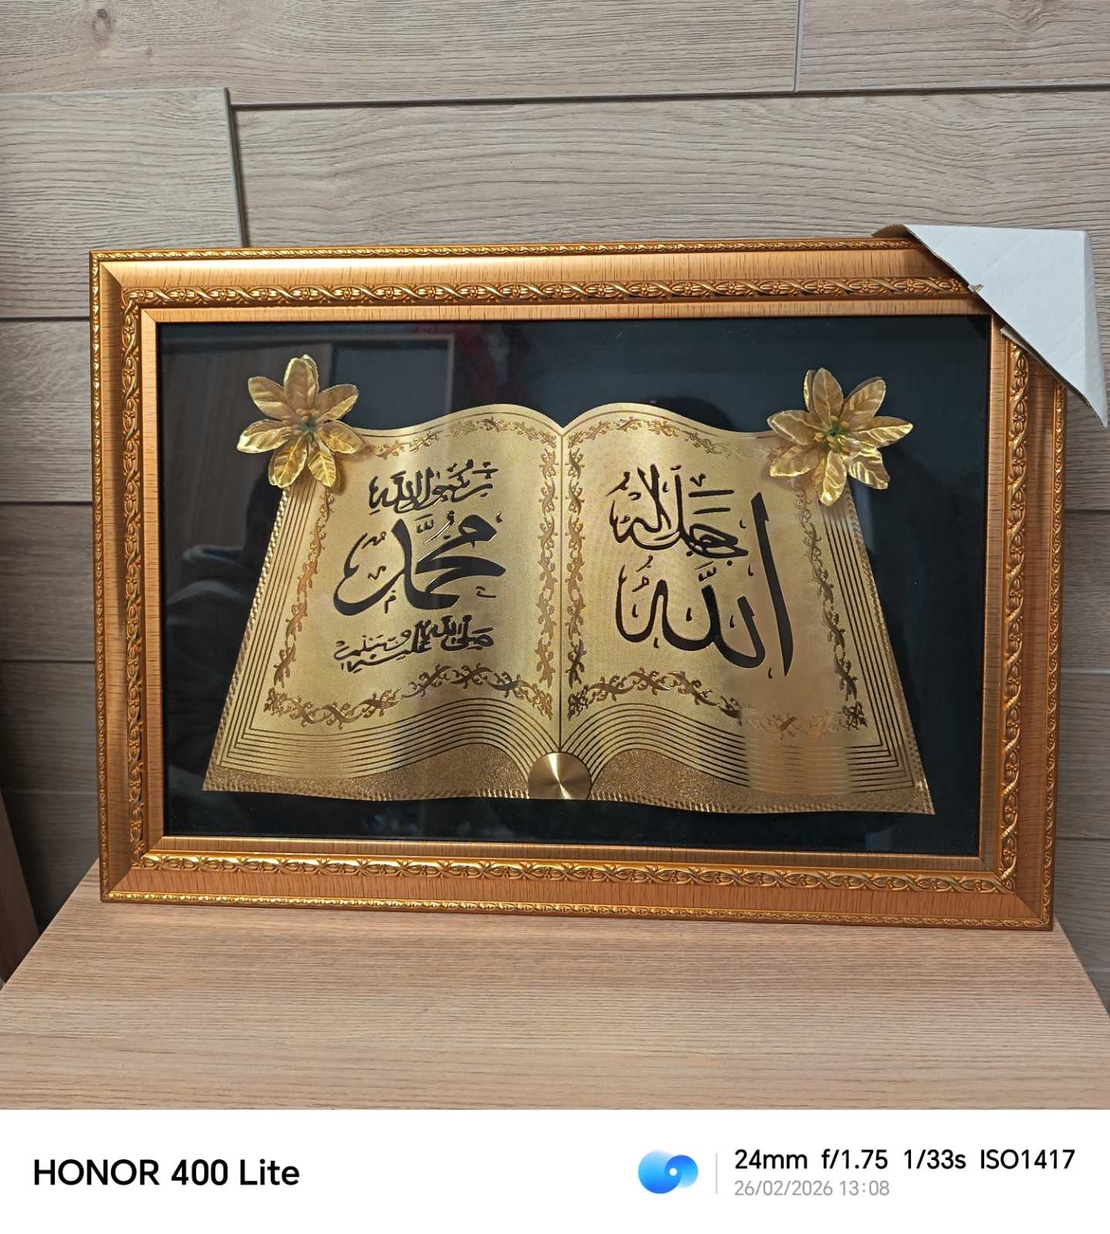 جل جلاله
الله
رسول الله
محمد
صلى الله عليه وسلم
HONOR 400 Lite
24mm f/1.75 1/33s ISO1417
26/02/2026 13:08